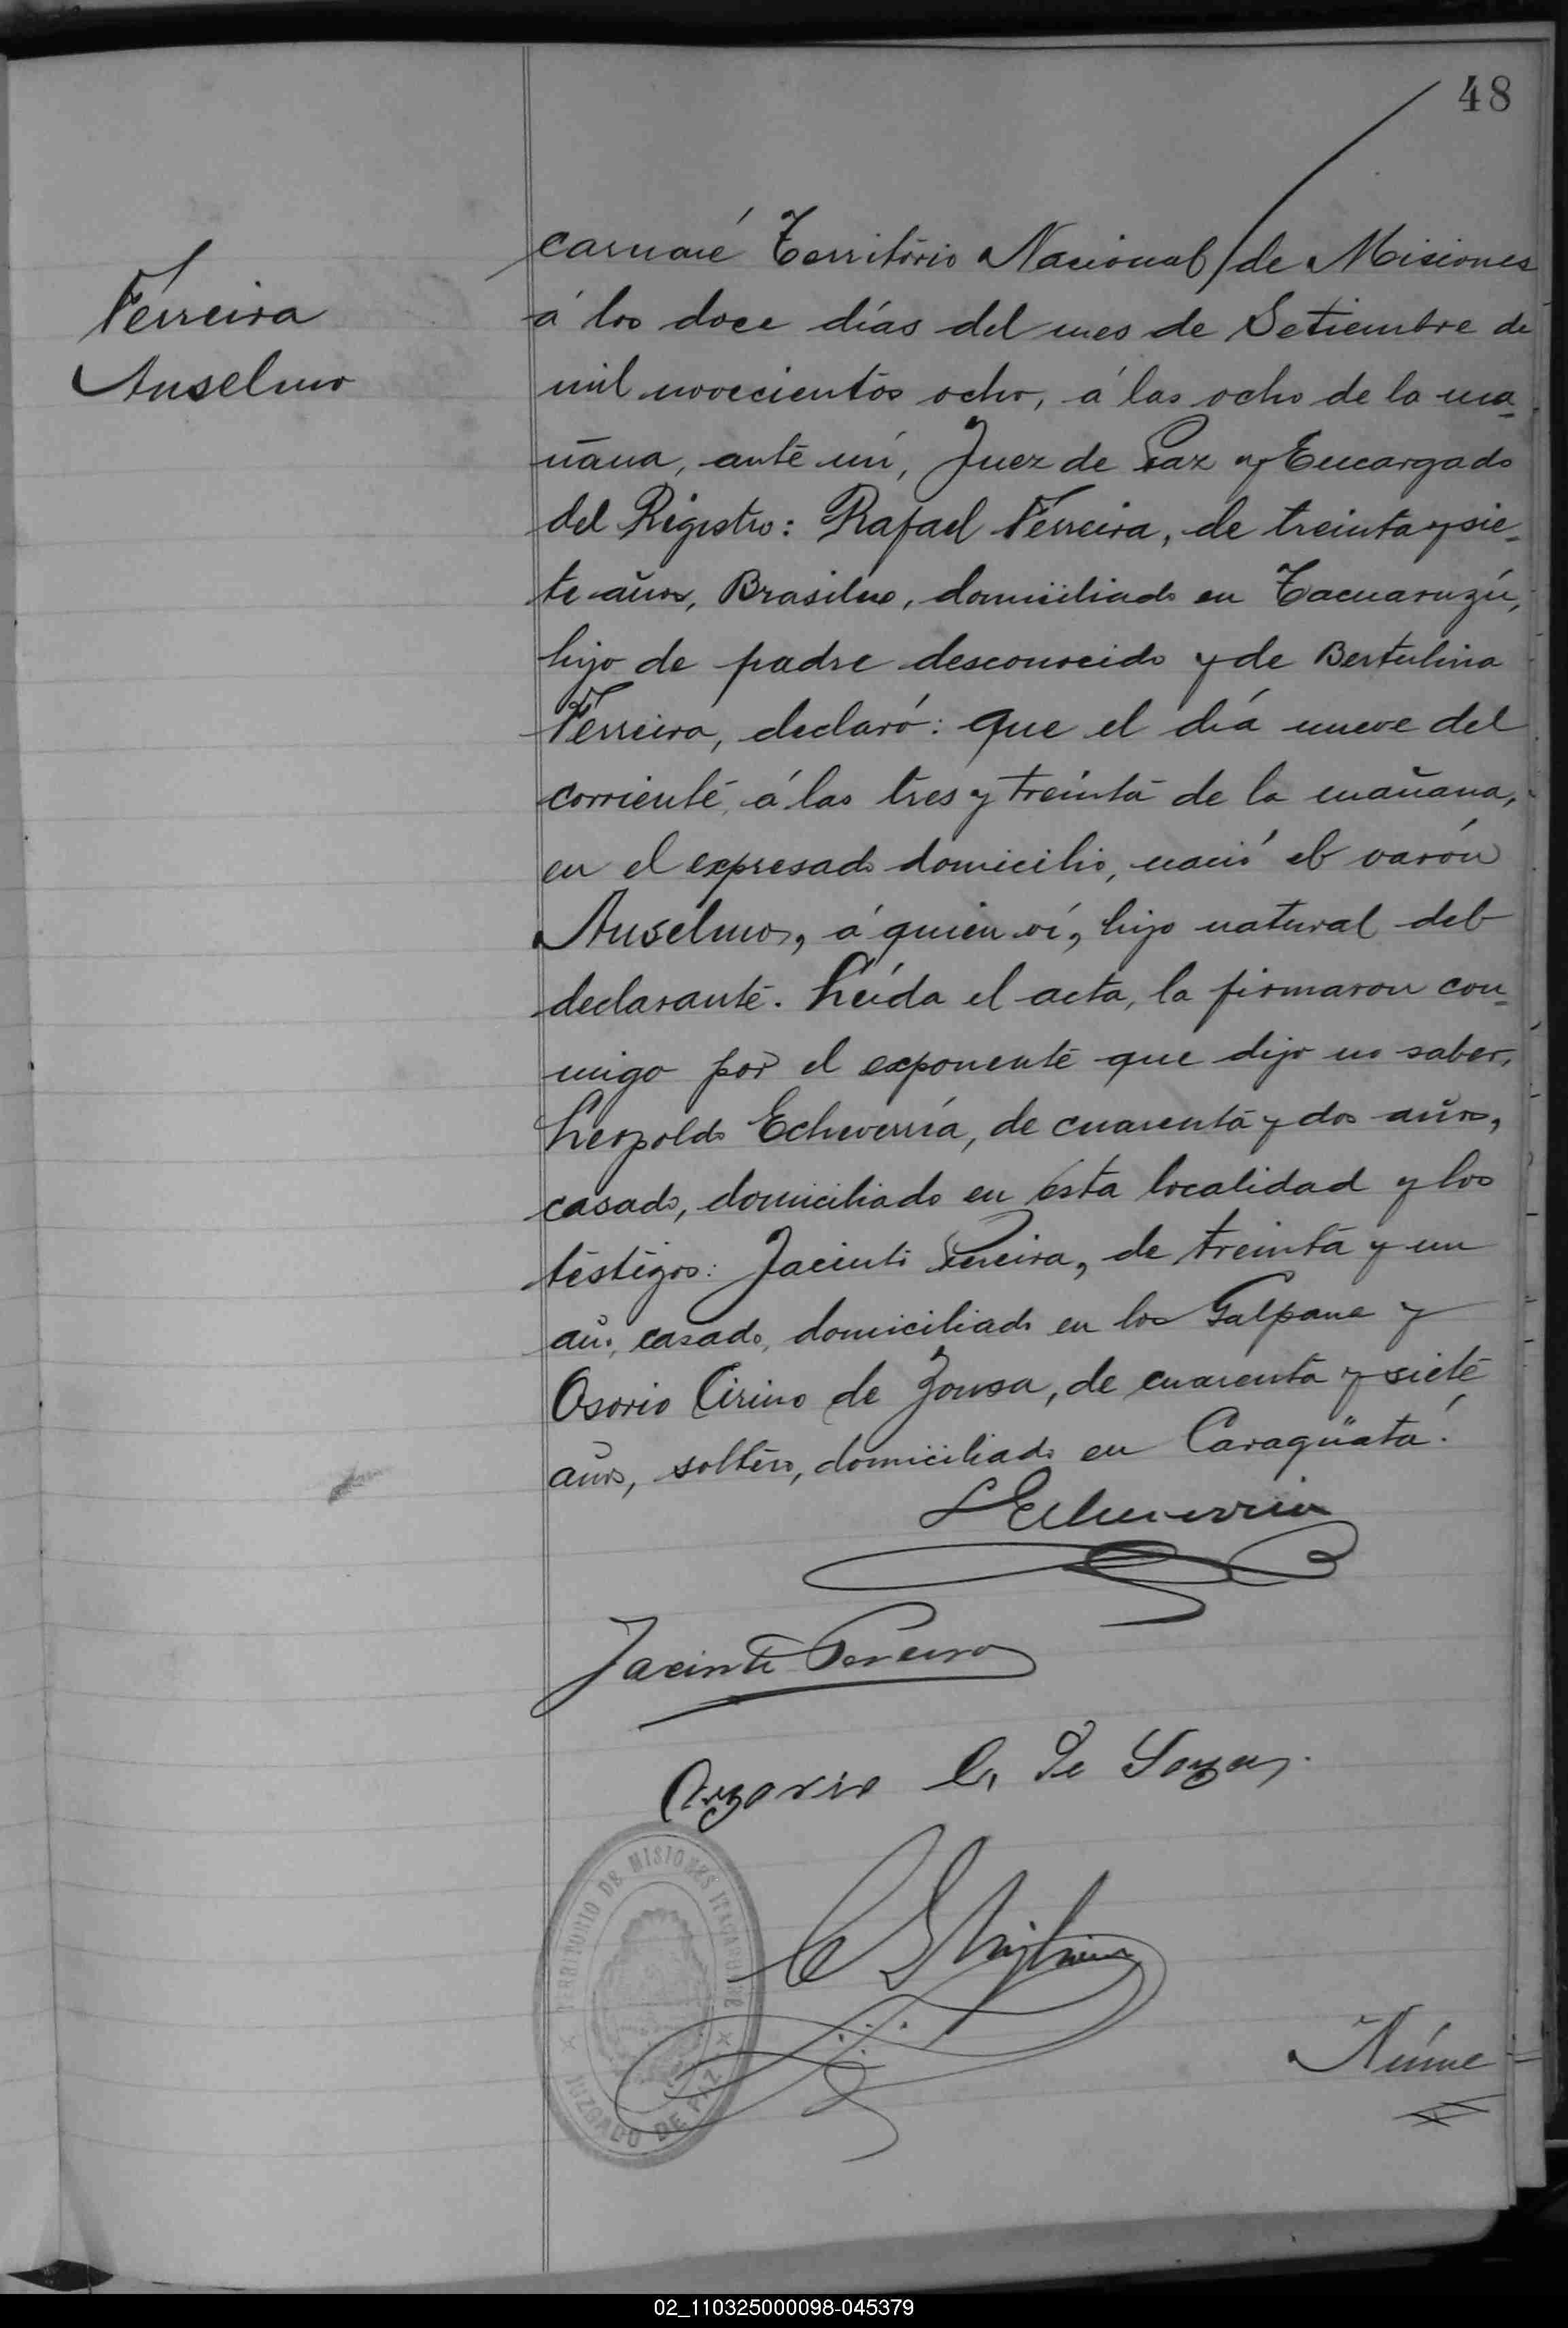 48
Ferreira
Anselmo
caruaré Territorio Nacional de Misiones
á los doce días del mes de Setiembre de
mil novecientos ocho, á las ocho de la ma-
ñana, ante mí, Juez de Paz y Encargado
del Registro: Rafael Ferreira, de treinta y sie-
te años, Brasilero, domiciliado en Tacuaruzú,
hijo de padre desconocido y de Bertulina
Ferreira, declaró: que el día nueve del
corriente, á las tres y treinta de la mañana,
en el expresado domicilio, nació el varón
Anselmo, á quien ví, hijo natural del
declarante. Leída el acta, la firmaron con-
migo por el exponente que dijo no saber,
Leopoldo Echeverría, de cuarenta y dos años,
casado, domiciliado en esta localidad y los
testigos: Jacinto Pereira, de treinta y un
año, casado, domiciliado en los Galpone y
Osorio Cirino de Zousa, de cuarenta y siete
años, soltero, domiciliado en Caragüatá.
L Echeverria
Jacinto Pereira
Ozorio C. de Souza.
TERRITORIO DE MISIONES ITACARUARE
JUZGADO DE PAZ
Núme
02_110325000098-045379